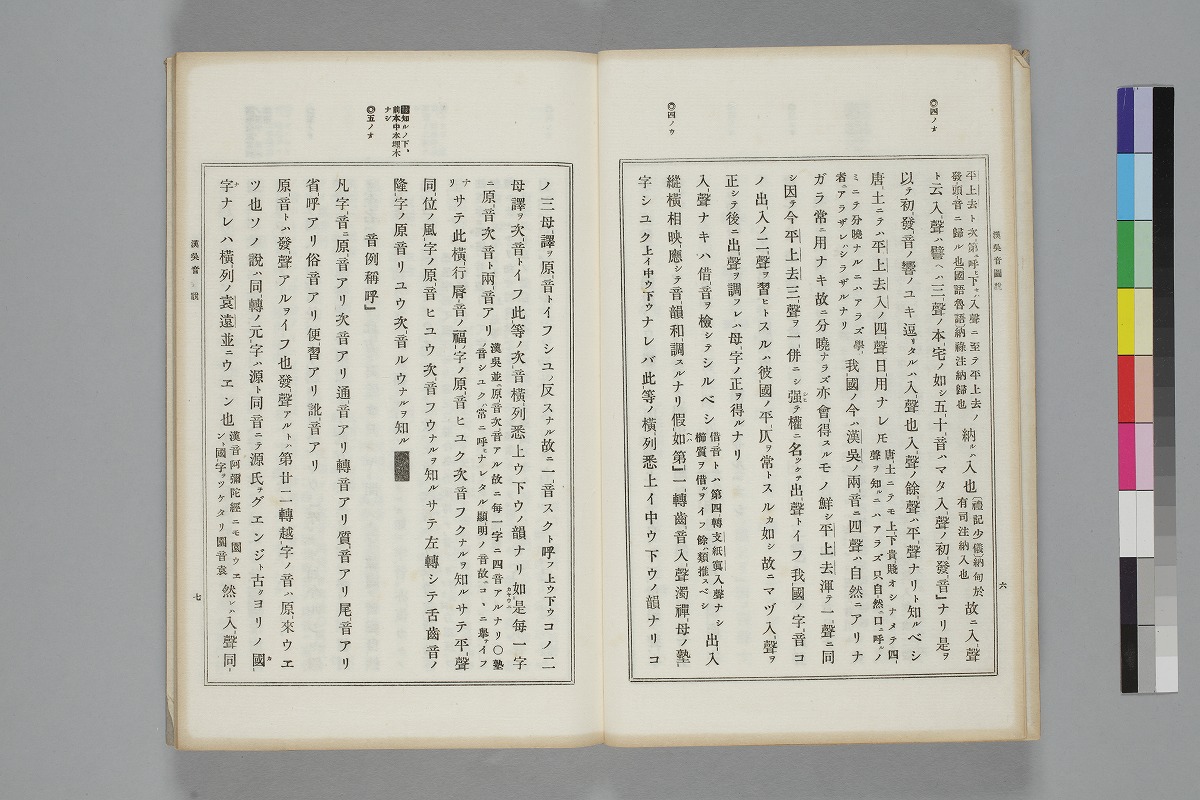 ◎四ノオ
◎四ノウ
漢吳音圖說
六
平上去ト次第ニ呼ヒ下セハ入聲ニ至ラ平上去ノ
發頭音ニ歸ル也國語魯語納祿注納歸也
納ルハ入也
禮記少儀納甸於
有司注納入也
故ニ入聲
ト云入聲ハ譬ヘハ三聲ノ本宅ノ如シ五十音ハマタ入聲ノ初發音ナリ是ヲ
以テ初發音響ノユキ逗リタルハ入聲也入聲ノ餘聲ハ平聲ナリト知ルベシ
唐土ニテハ平上去入ノ四聲日用ナレ𪜈
唐土ニテモ上下貴賤オシナメテ四
聲ヲ知ルニハアラズ只自然ニ口ニ呼ルノ
ミニテ分曉ナルニハアラズ學
者ニアラザレバシラザルナリ
我國ノ今ハ漢吳ノ兩音ニ四聲ハ自然ニアリナ
ガラ常ニ用ナキ故ニ分曉ナラズ亦會得スルモノ鮮シ平上去渾テ一聲ニ同
シ因テ今平上去三聲ヲ一併ニシ强テ權ニ名ツケテ出聲トイフ我國ノ字音コ
ノ出入ノ二聲ヲ習ヒトスルハ彼國ノ平仄ヲ常トスルカ如シ故ニマヅ入聲ヲ
正シテ後ニ出聲ヲ調フレハ母字ノ正ヲ得ルナリ
入聲ナキハ借音ヲ檢シテシルベシ
借音トハ第四轉支紙寘入聲ナシ
櫛質ヲ借ルヲイフ餘ハ類推スベシ
出入
縱橫相映應シテ音韻和調スルナリ假ヘハ如第一轉齒音入聲濁禪母ノ塾
字シユク上イ中ウ下ウナレバ此等ノ橫列悉上イ中ウ下ウノ韻ナリコ
ノ三母譯ヲ原音トイフシユノ反スナル故ニ一音スクト呼フ上ウ下ウコノ二
母譯ヲ次音トイフ此等ノ次音橫列悉上ウ下ウノ韻ナリ如是每一字
ニ原音次音ト兩音アリ
漢吳並ニ原音次音アル故ニ每一字ニ四音アルナリ〇塾
音シユクハ常ニ呼ヒナレタル顯明ノ音故ニコヽニ擧テイフ
ナ
リ
サテ此橫行脣音ノ福ノ字ノ原音ヒユク次音フクナルヲ知ルサテ平聲
同位ノ風字ノ原音ヒユウ次音フウナルヲ知ルサテ左轉シテ舌齒音ノ
隆字ノ原音リユウ次音ルウナルヲ知ル
知ルノ下、
前本中本埋木
ナシ
◎五ノオ
音例稱呼
凡字音ニ原音アリ次音アリ通音アリ轉音アリ質音アリ尾音アリ
省呼アリ俗音アリ便習アリ訛音アリ
原音トハ發聲アルヲイフ也發聲アルトハ第廿二轉越字ノ音ハ原來ウエ
ツ也ソノ說ハ同轉ノ元字ハ源ト同音ニテ源氏ヲグエンジト古クヨリノ國
字ナレハ橫列ノ袁遠並ニウエン也
漢音阿彌陀經ニモ園ウエ
ント國字ヲツケタリ園音袁
然レハ入聲同
漢吳音圖說
七